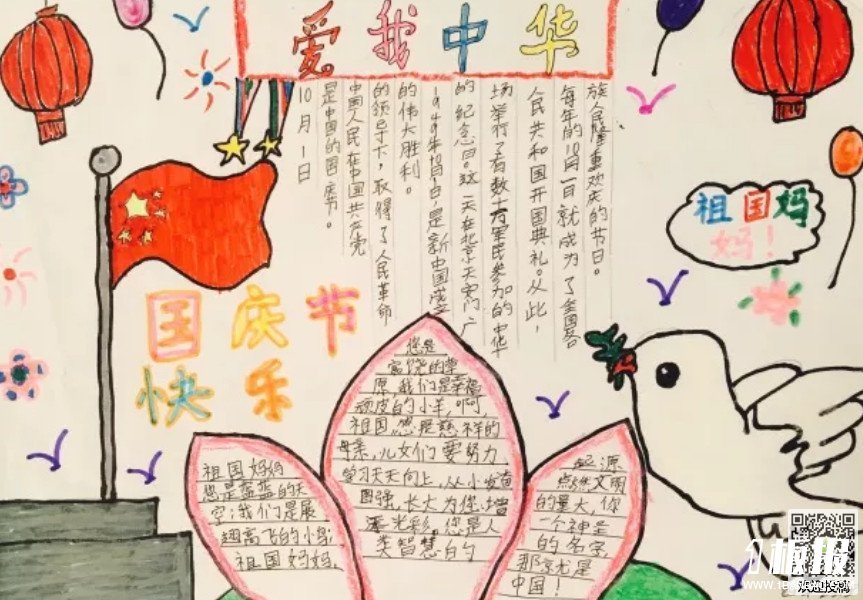 爱我中华
10月1日
是中国的国庆节。
中国人民在中国共产党
的领导下，取得了人民革命
的伟大胜利。
1949年10月1日，是新中国成立
的纪念日。这一天在北京天安门广
场举行了有数十万军民参加的中华
人民共和国开国典礼。从此，
每年的10月一日就成为了全国各
族人民隆重欢庆的节日。
祖国妈
妈！
国庆节
快乐
祖国妈妈
您是蓝蓝的天
空；我们是展
翅高飞的小鸟；
祖国妈妈，
您是
富饶的草
原，我们是幸福
顽皮的小羊。啊，
祖国您是慈祥的
母亲，儿女们要努力
学习天天向上，从小
图强，长大为您增
光彩。您是人
类智慧的
起源
点缀文明
的量大，你
一个神圣
的名字，
那就是
中国！
板报